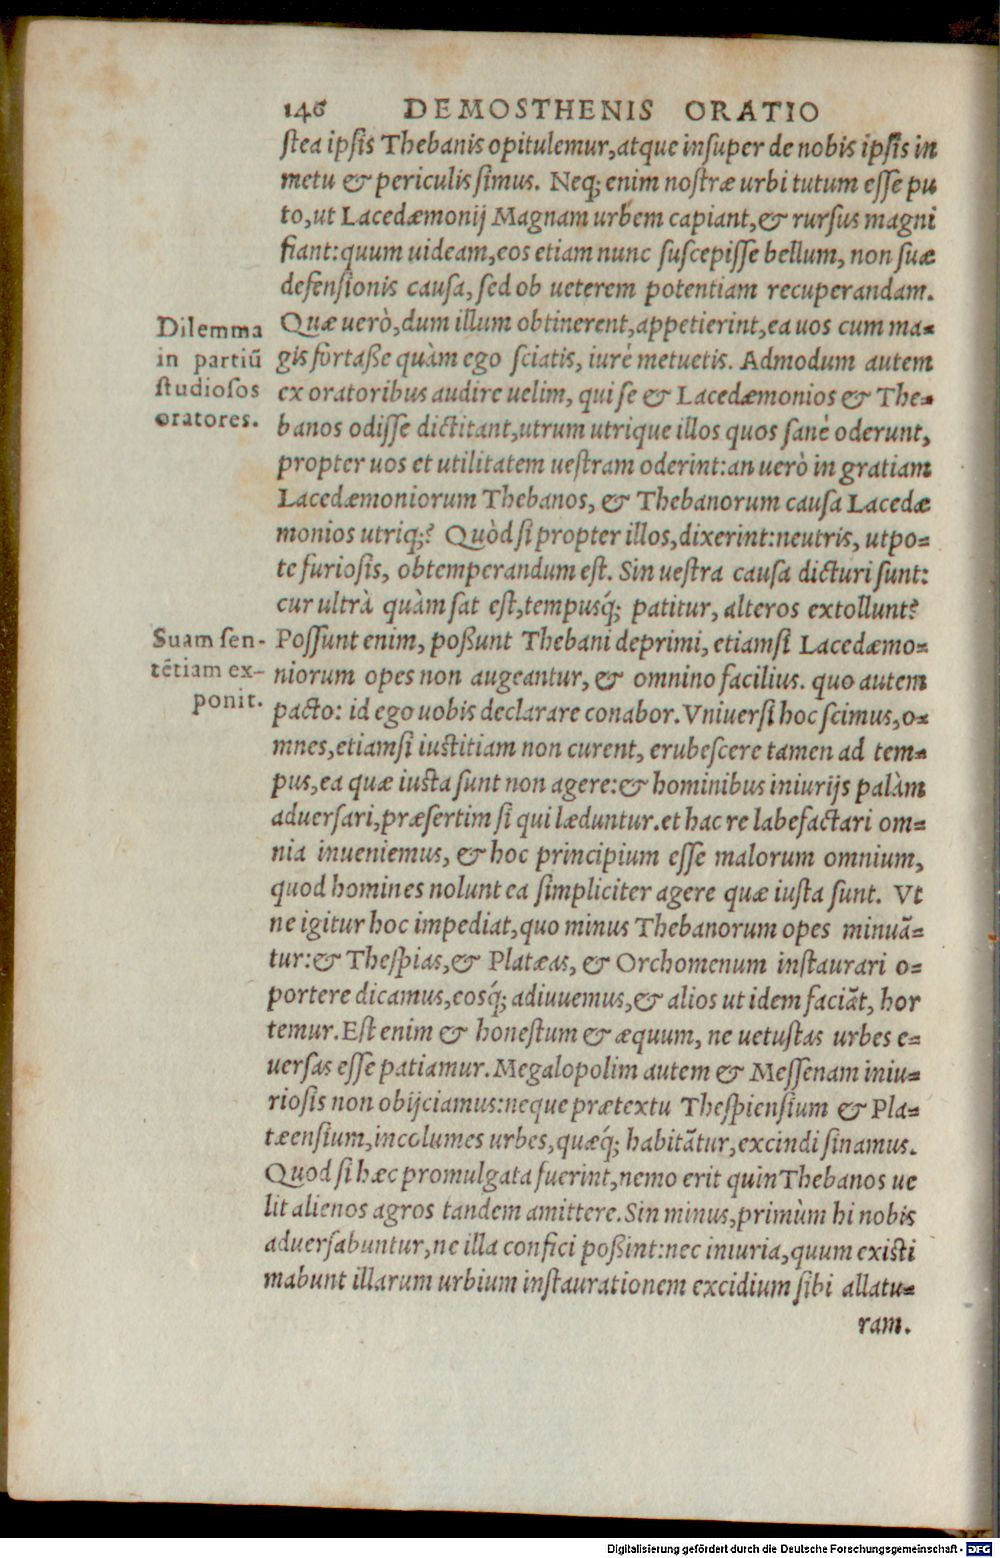 146 DEMOSTHENIS ORATIO
stea ipsis Thebanis opitulemur, atque insuper de nobis ipsis in
metu & periculis simus. Neq; enim nostræ urbi tutum esse pu
to, ut Lacedæmonij Magnam urbem capiant, & rursus magni
fiant: quum uideam, eos etiam nunc suscepisse bellum, non suæ
defensionis causa, sed ob ueterem potentiam recuperandam.
Quæ uerò, dum illum obtinerent, appetierint, ea uos cum ma=
gis fortaße quàm ego sciatis, iure metuetis. Admodum autem
ex oratoribus audire uelim, qui se & Lacedæmonios & The=
banos odisse dictitant, utrum utrique illos quos sanè oderunt,
propter uos et utilitatem uestram oderint: an uerò in gratiam
Lacedæmoniorum Thebanos, & Thebanorum causa Lacedæ
monios utriq;? Quòd si propter illos, dixerint: neutris, utpo=
te furiosis, obtemperandum est. Sin uestra causa dicturi sunt:
cur ultrà quàm sat est, tempusq́; patitur, alteros extollunt?
Possunt enim, poßunt Thebani deprimi, etiamsi Lacedæmo=
niorum opes non augeantur, & omnino facilius. quo autem
pacto: id ego uobis declarare conabor. Vniuersi hoc scimus, o=
mnes, etiamsi iustitiam non curent, erubescere tamen ad tem=
pus, ea quæ iusta sunt non agere: & hominibus iniurijs palàm
aduersari, præsertim si qui læduntur. et hac re labefactari om=
nia inueniemus, & hoc principium esse malorum omnium,
quod homines nolunt ea simpliciter agere quæ iusta sunt. Vt
ne igitur hoc impediat, quo minus Thebanorum opes minuã=
tur: & Thespias, & Platæas, & Orchomenum instaurari o=
portere dicamus, eosq́; adiuuemus, & alios ut idem faciãt, hor
temur. Est enim & honestum & æquum, ne uetustas urbes e=
uersas esse patiamur. Megalopolim autem & Messenam iniu=
riosis non obijciamus: neque prætextu Thespiensium & Pla=
tæensium, incolumes urbes, quæq́; habitãtur, excindi sinamus.
Quod si hæc promulgata fuerint, nemo erit quin Thebanos ue
lit alienos agros tandem amittere. Sin minus, primùm hi nobis
aduersabuntur, ne illa confici poßint: nec iniuria, quum existi
mabunt illarum urbium instaurationem excidium sibi allatu=
ram.
Dilemma
in partiũ
studiosos
oratores.
Suam sen-
tẽtiam ex-
ponit.
Digitalisierung gefördert durch die Deutsche Forschungsgemeinschaft - DFG